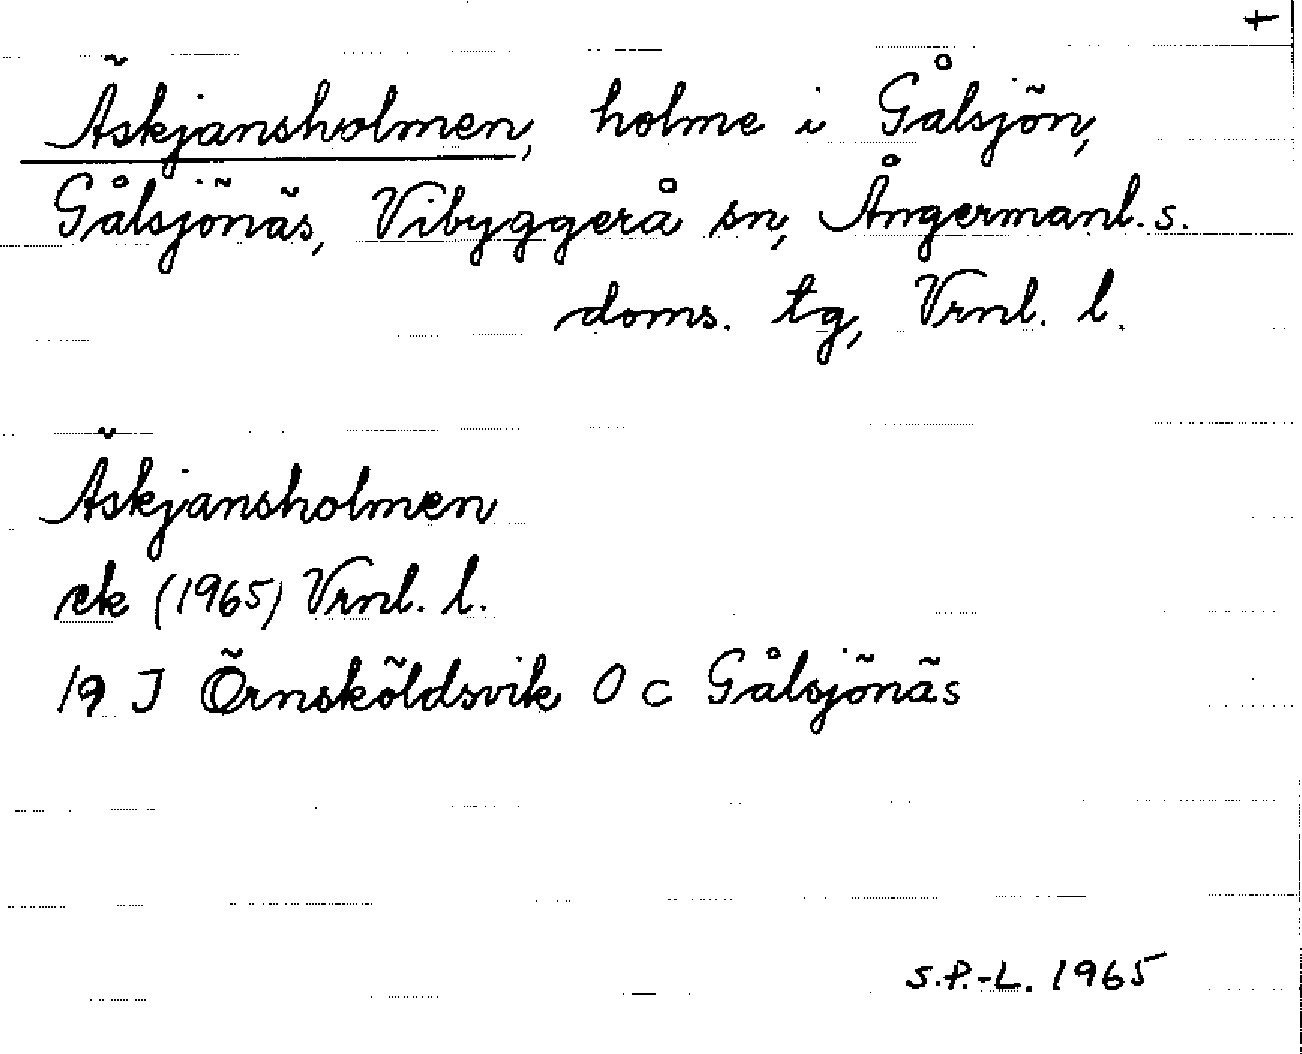 +
Äskjansholmen, holme i Gålsjön,
Gålsjönäs, Vibyggerå sn, Ångermanl. s.
doms. tg, Vrnl. l.
Äskjansholmen
ek (1965) Vrnl. l.
19 J Örnsköldsvik O c Gålsjönäs
S.P.-L. 1965